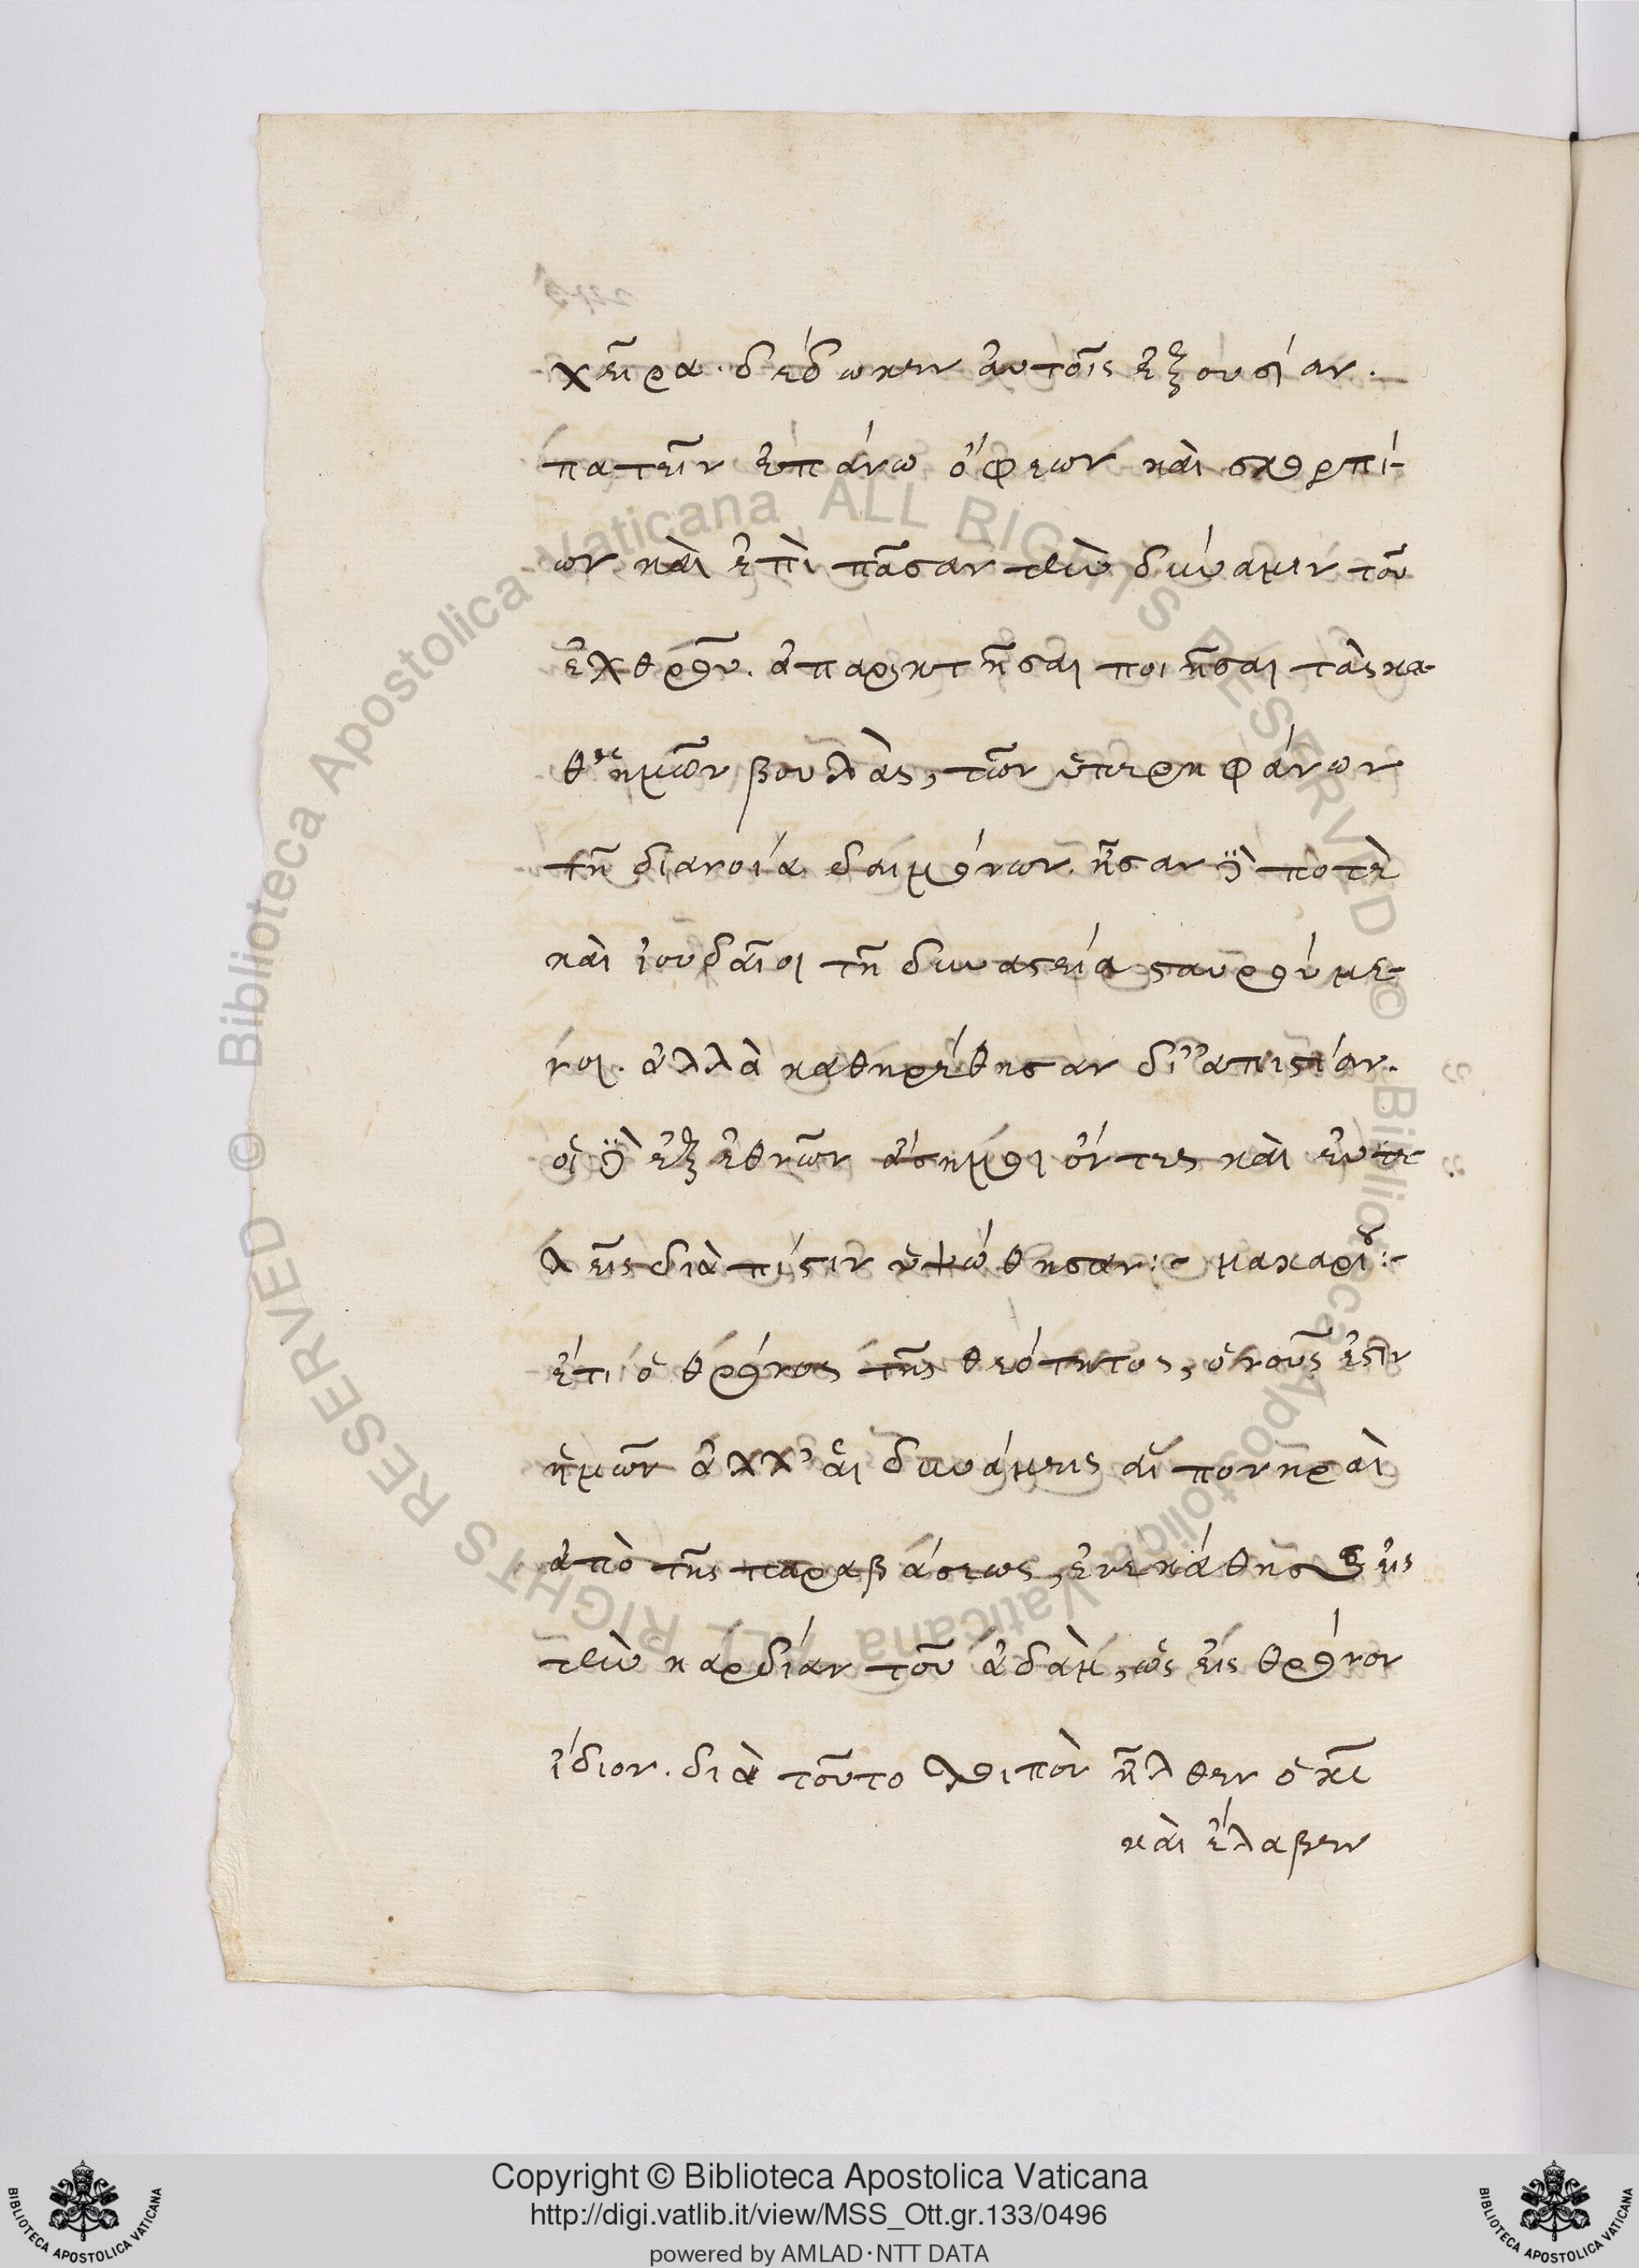 χεῖρα. δέδωκεν αὐτοῖς ἐξουσίαν.
πατεῖν ἐπάνω ὄφεων καὶ σκορπί-
ων καὶ ἐπὶ πᾶσαν τὴν δύναμιν τοῦ
ἐχθροῦ. ποιῆσαι τὰς κα-
θ' ἡμῶν βουλὰς, τῶν ὑπερηφάνων
τῇ διανοίᾳ δαιμόνων. ἦσαν δὲ ποτὲ
καὶ ἰουδαῖοι τῇ δυναστείᾳ σταυρούμε-
νοι. ἀλλὰ καθηρέθησαν δι' ἀπιστίαν.
οἱ δὲ ἐξ ἐθνῶν ἄσημοι ὄντες καὶ εὐτε-
λεῖς διὰ πίστιν ὑψώθησαν:- μακαρίου:-
ἔτι ὁ θρόνος τῆς θεότητος, ὁ νοῦς ἐστὶν
ἡμῶν ἀλλ' αἱ δυνάμεις αἱ πονηραὶ
ἀπὸ τῆς παραβάσεως, ἐνεκάθησαν εἰς
τὴν καρδίαν τοῦ ἀδὰμ, ὡς εἰς θρόνον
ἴδιον. διὰ τοῦτο λοιπὸν ἦλθεν ὁ κς
καὶ ἔλαβεν
© Biblioteca Apostolica Vaticana ALL RIGHTS RESERVED © Biblioteca Apostolica Vaticana ALL RIGHTS RESERVED
Copyright © Biblioteca Apostolica Vaticana
http://digi.vatlib.it/view/MSS_Ott.gr.133/0496
powered by AMLAD·NTT DATA
BIBLIOTECA APOSTOLICA VATICANA
BIBLIOTECA APOSTOLICA VATICANA